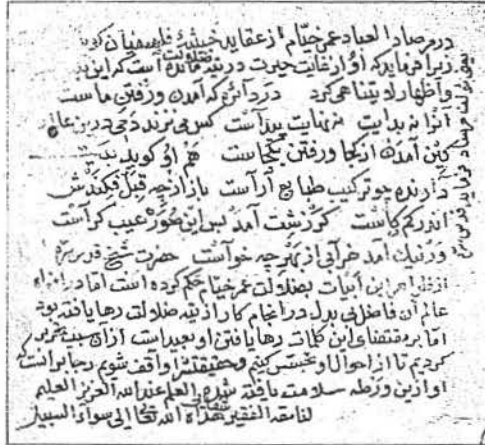 در مرصاد العباد عمر خیام را از عقاید خبیثه فلسفیان
زیرا فرماید که او از غایت حیرت در تیه ضلالت مانده است که این
و اظهار لا یتناهی کرد در دائره که آمدن و رفتن ماست
آنرا نه بدایت نه نهایت پیداست کس می نزند دمی درین عالم
کین آمدن از کجا و رفتن بکجاست هم او کوید
دارنده چو ترکیب طبایع آراست باز از چه قبل فکندش
اندر کم کاست کر زشت آمد پس این صور عیب کراست
ور نیک آمد خرابی از بهر چه خواست حضرت شیخ
از ظاهر این ابیات بضلالت عمر خیام حکم کرده است اما در افواه
عالم آن فاضل بی بدل در انجام کار از تیه ضلالت رها یافته بود
اما بر مقتضای این کلمات رها یافتن او بعید است از آن سبب تحریر
کردیم تا از احوال او تجسس کنیم و حقیقتش را واقف شوم رجا بر آنست که
او ازین ورطه سلامت یافته شده العلم عند الله العزیز العلیم
لنامقه الفقیر هداه الله تعالی الی سواء السبیل